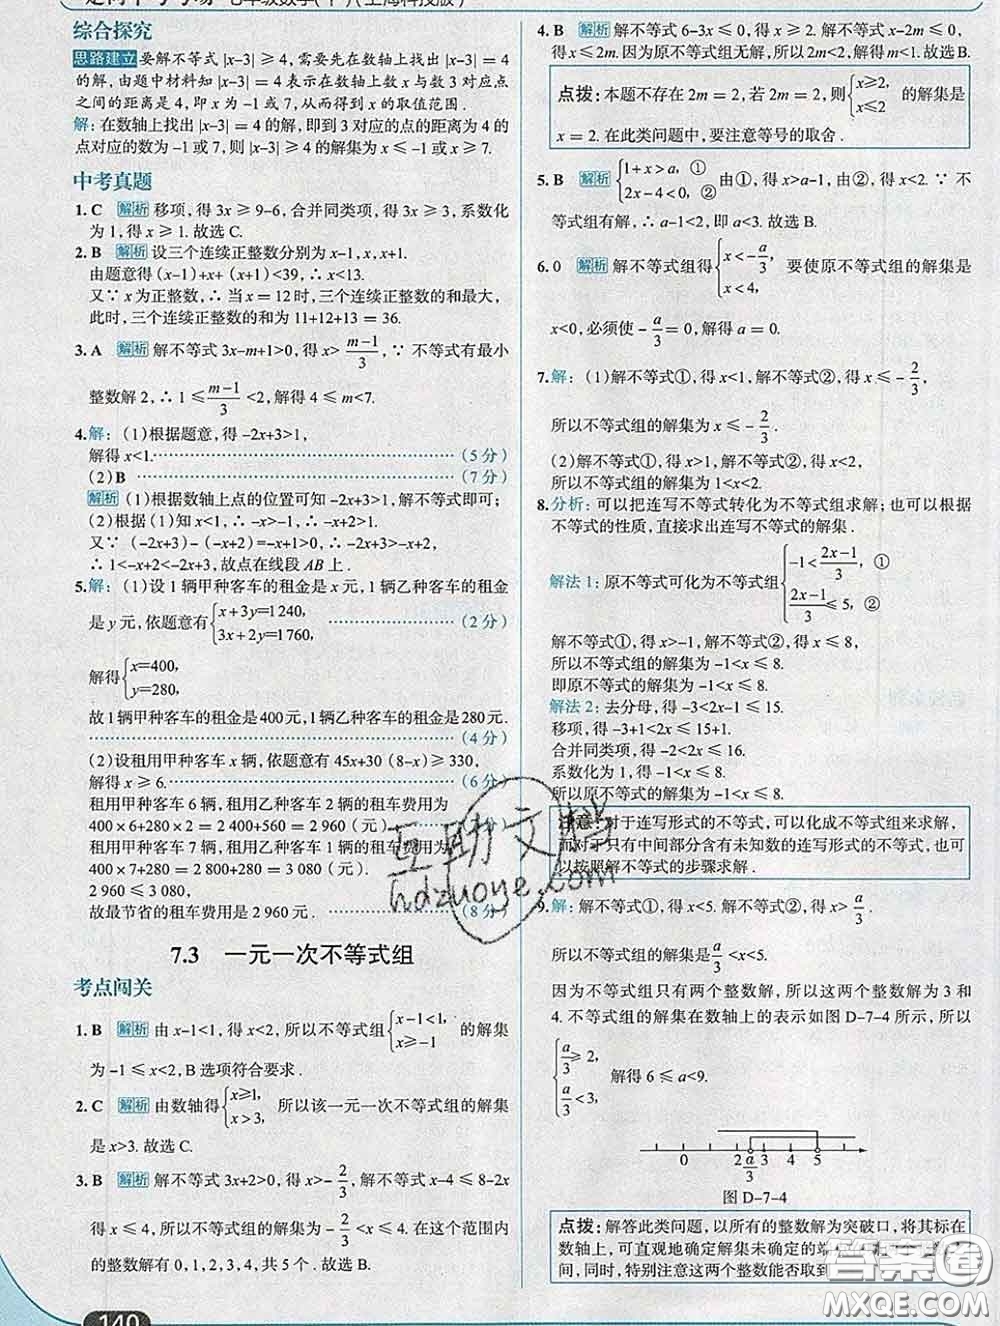 走向中考考场 七年级数学(下)(上海科技版)
综合探究
思路建立 要解不等式 |x-3| ≥ 4, 需要先在数轴上找出 |x-3| = 4
的解, 由题中材料知 |x-3| = 4 表示在数轴上数 x 与数 3 对应点
之间的距离是 4, 即 x 为 -1 或 7, 从而得到 x 的取值范围.
解: 在数轴上找出 |x-3| = 4 的解, 即到 3 对应的点的距离为 4 的
点对应的数为 -1 或 7, 则 |x-3| ≥ 4 的解集为 x ≤ -1 或 x ≥ 7.
中考真题
1. C 解析 移项, 得 3x ≥ 9-6, 合并同类项, 得 3x ≥ 3, 系数化
为 1, 得 x ≥ 1. 故选 C.
2. B 解析 设三个连续正整数分别为 x-1, x, x+1.
由题意得 (x-1)+x+(x+1)<39, ∴ x<13.
又∵ x 为正整数, ∴ 当 x = 12 时, 三个连续正整数的和最大,
此时, 三个连续正整数的和为 11+12+13 = 36.
3. A 解析 解不等式 3x-m+1>0, 得 x> (m-1)/3, ∵ 不等式有最小
整数解 2, ∴ 1 ≤ (m-1)/3 <2, 解得 4 ≤ m<7.
4. 解: (1) 根据题意, 得 -2x+3>1,
解得 x<1. (5 分)
(2) B (7 分)
解析 (1) 根据数轴上点的位置可知 -2x+3>1, 解不等式即可;
(2) 根据 (1) 知 x<1, ∴ -x>-1, ∴ -x+2>1.
又∵ (-2x+3)-(-x+2)=-x+1>0, ∴ -2x+3>-x+2,
∴ 1<-x+2<-2x+3, 故点在线段 AB 上.
5. 解: (1) 设 1 辆甲种客车的租金是 x 元, 1 辆乙种客车的租金
是 y 元, 依题意有 { x+3y=1 240, 3x+2y=1 760, (2 分)
解得 { x=400, y=280,
故 1 辆甲种客车的租金是 400 元, 1 辆乙种客车的租金是 280 元.
(4 分)
(2) 设租用甲种客车 x 辆, 依题意有 45x+30 (8-x) ≥ 330,
解得 x ≥ 6. (6 分)
租用甲种客车 6 辆, 租用乙种客车 2 辆的租车费用为
400×6+280×2 = 2 400+560 = 2 960 (元).
租用甲种客车 7 辆, 租用乙种客车 1 辆的租车费用为
400×7+280 = 2 800+280 = 3 080 (元).
2 960 ≤ 3 080,
故最节省的租车费用是 2 960 元. (8 分)
7.3 一元一次不等式组
考点闯关
1. B 解析 由 x-1<1, 得 x<2, 所以不等式组 { x-1<1, x≥-1 的解集
为 -1 ≤ x<2, B 选项符合要求.
2. C 解析 由数轴得 { x≥1, x>3, 所以该一元一次不等式组的解集
是 x>3. 故选 C.
3. B 解析 解不等式 3x+2>0, 得 x>-2/3, 解不等式 x-4 ≤ 8-2x
得 x ≤ 4, 所以不等式组的解集为 -2/3 <x ≤ 4, 在这个范围内
的整数解有 0, 1, 2, 3, 4, 共 5 个. 故选 B.
140
4. B 解析 解不等式 6-3x ≤ 0, 得 x ≥ 2. 解不等式 x-2m ≤ 0,
得 x ≤ 2m. 因为原不等式组无解, 所以 2m<2, 解得 m<1. 故选 B.
点拨: 本题不存在 2m = 2, 若 2m = 2, 则 { x≥2, x≤2 的解集是
x = 2. 在此类问题中, 要注意等号的取舍.
5. B 解析 { 1+x>a, ① 2x-4<0, ② 由①, 得 x>a-1, 由②, 得 x<2. ∵ 不
等式组有解, ∴ a-1<2, 即 a<3. 故选 B.
6. 0 解析 解不等式组得 { x<-a/3, x<4, 要使原不等式组的解集是
x<0, 必须使 -a/3 = 0, 解得 a = 0.
7. 解: (1) 解不等式①, 得 x<1, 解不等式②, 得 x ≤ -2/3,
所以不等式组的解集为 x ≤ -2/3.
(2) 解不等式①, 得 x>1, 解不等式②, 得 x<2,
所以不等式组的解集为 1<x<2.
8. 分析: 可以把连写不等式转化为不等式组求解; 也可以根据
不等式的性质, 直接求出连写不等式的解集.
解法 1: 原不等式可化为不等式组 { -1< (2x-1)/3, ① (2x-1)/3 ≤ 5, ②
解不等式①, 得 x>-1, 解不等式②, 得 x ≤ 8,
所以不等式组的解集为 -1<x ≤ 8.
即原不等式的解集为 -1<x ≤ 8.
解法 2: 去分母, 得 -3<2x-1 ≤ 15.
移项, 得 -3+1<2x ≤ 15+1.
合并同类项, 得 -2<2x ≤ 16.
系数化为 1, 得 -1<x ≤ 8.
所以原不等式的解集为 -1<x ≤ 8.
注意: 对于连写形式的不等式, 可以化成不等式组来求解,
而对于只有中间部分含有未知数的连写形式的不等式, 也可
以按照解不等式的步骤求解.
9. 解: 解不等式①, 得 x<5. 解不等式②, 得 x> a/3.
所以不等式组的解集是 a/3 <x<5.
因为不等式组只有两个整数解, 所以这两个整数解为 3 和
4. 不等式组的解集在数轴上的表示如图 D-7-4 所示, 所以
{ a/3 ≥ 2, a/3 < 3, 解得 6 ≤ a<9.
0 2 a/3 3 4 5
图 D-7-4
点拨: 解答此类问题, 以所有的整数解为突破口, 将其标在
数轴上, 可直观地确定解集未确定的端
间, 同时, 特别注意这两个整数能否取到
互助文档
hdzuoye.com
答案圈
MXQE.COM